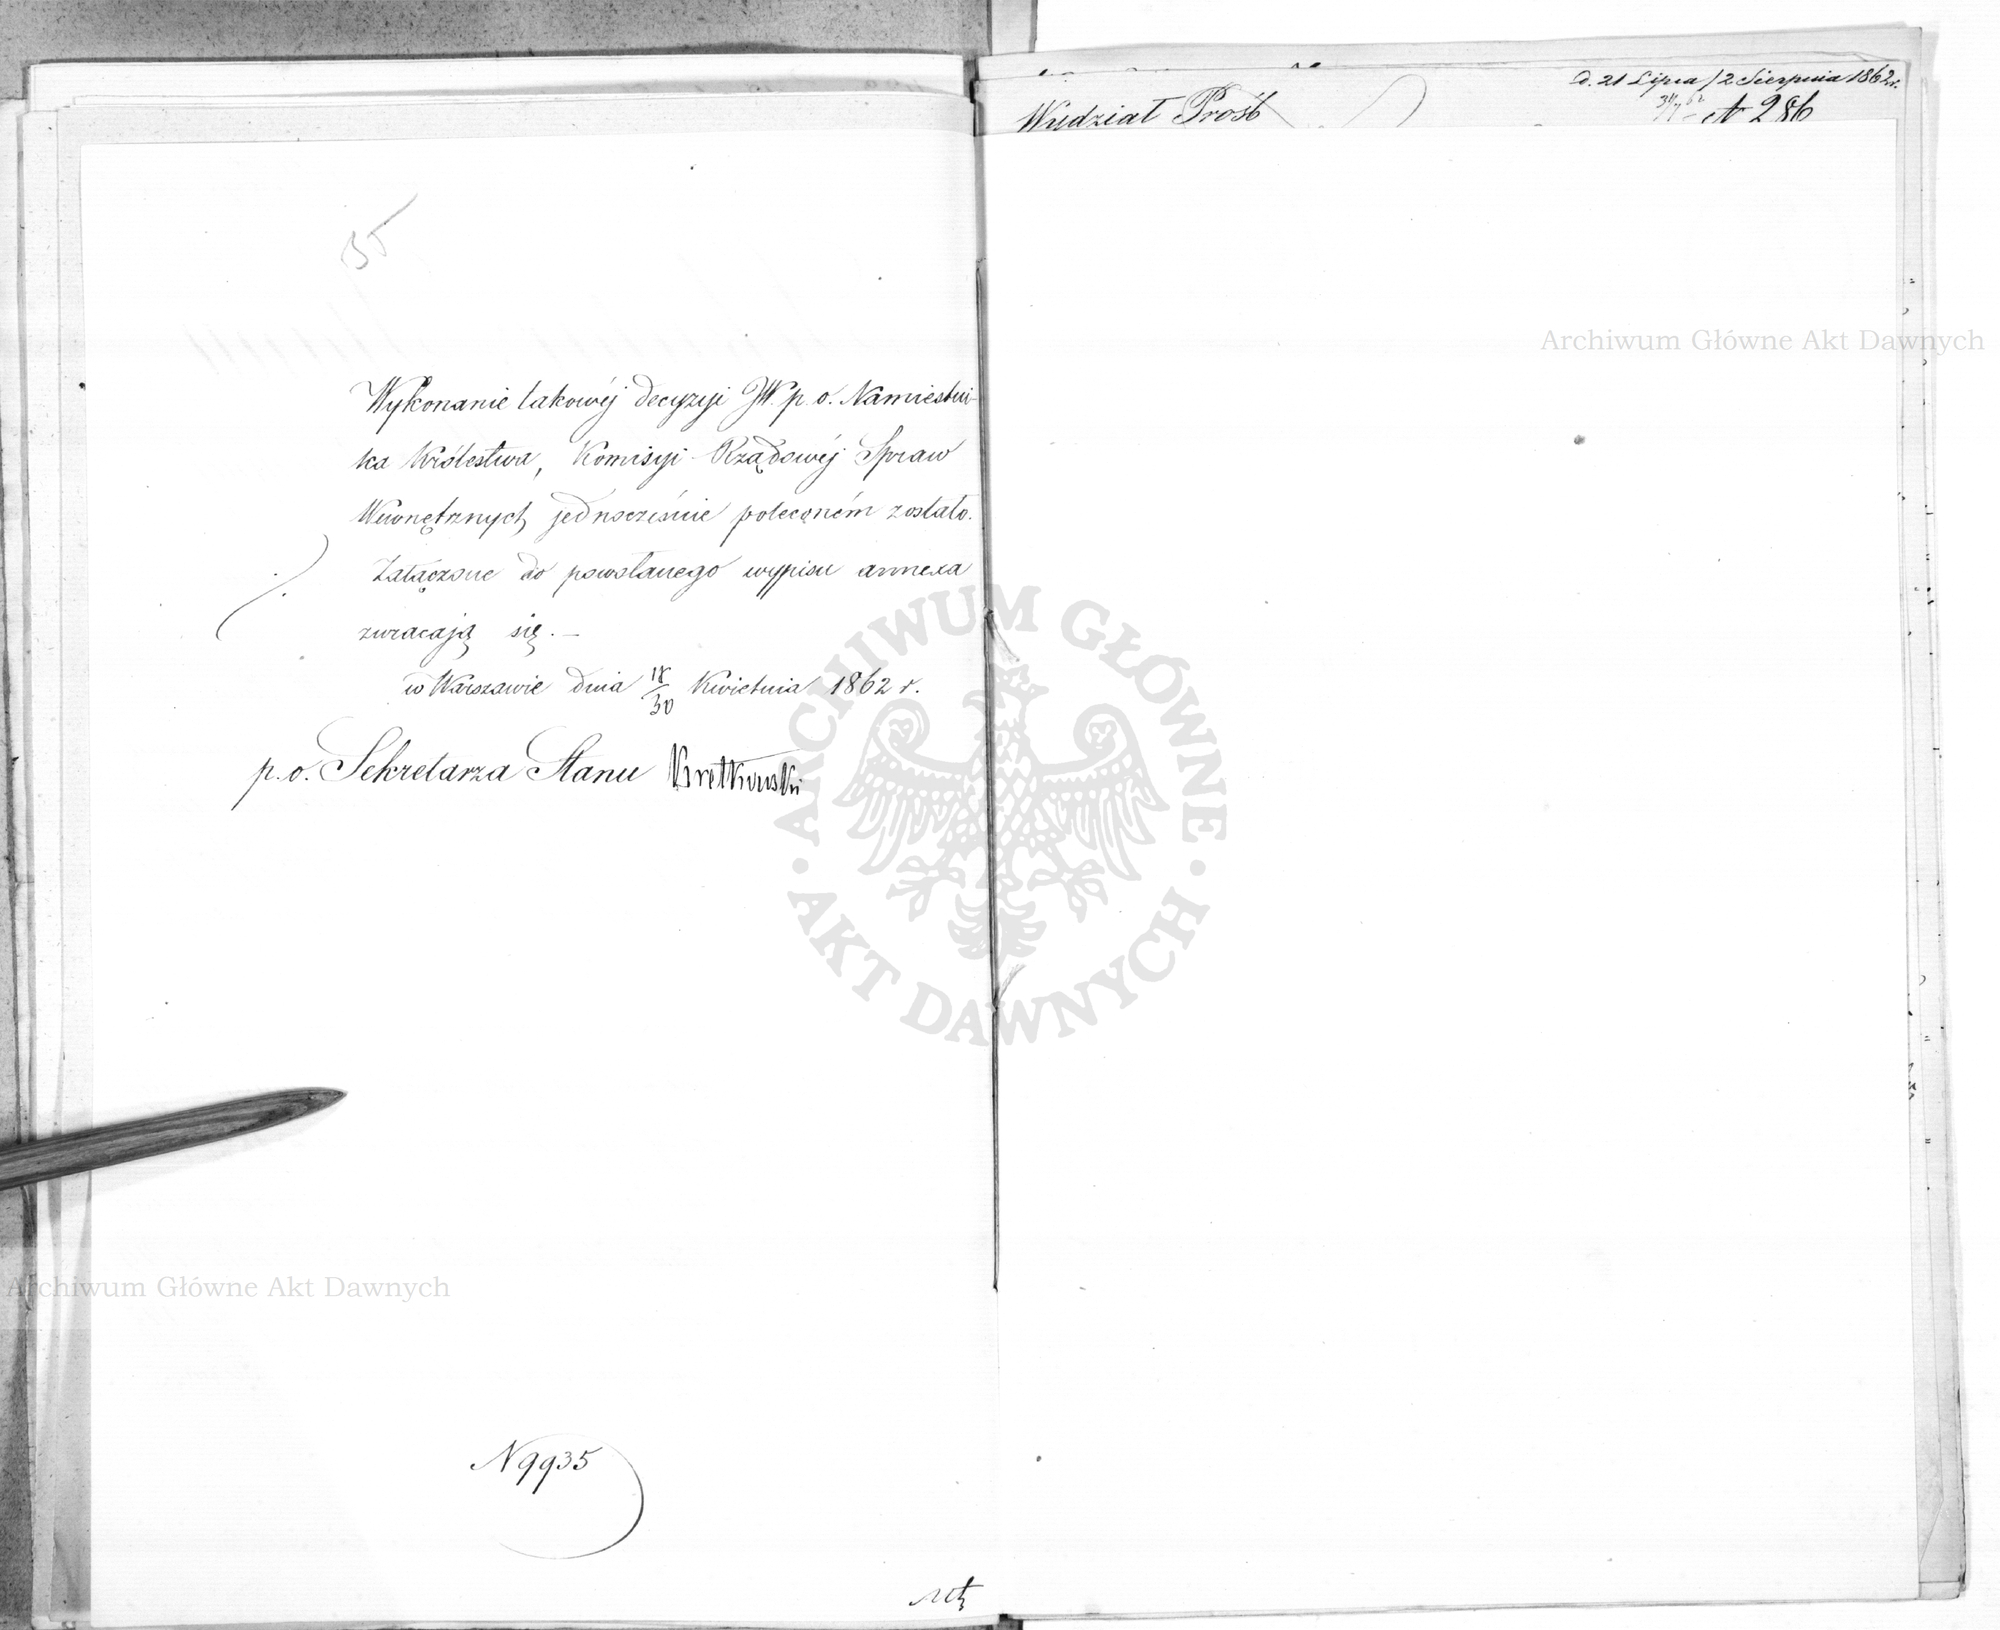 35
Wykonanie takowéj decyzyi JW. p. o. Namiestni-
ka Królestwa, Komisyi Rządowéj Spraw
Wewnętrznych jednocześnie poleconém zostało.
Załączone do powołanego wypisu annexa
zwracają się. —
w Warszawie dnia 18/30 Kwietnia 1862 r.
p. o. Sekretarza Stanu
N 9935
d. 21 Lipca/2 Sierpnia 1862 r.
Wydział Próśb
N 286
Archiwum Główne Akt Dawnych
ARCHIWUM GŁÓWNE · AKT DAWNYCH ·
Archiwum Główne Akt Dawnych